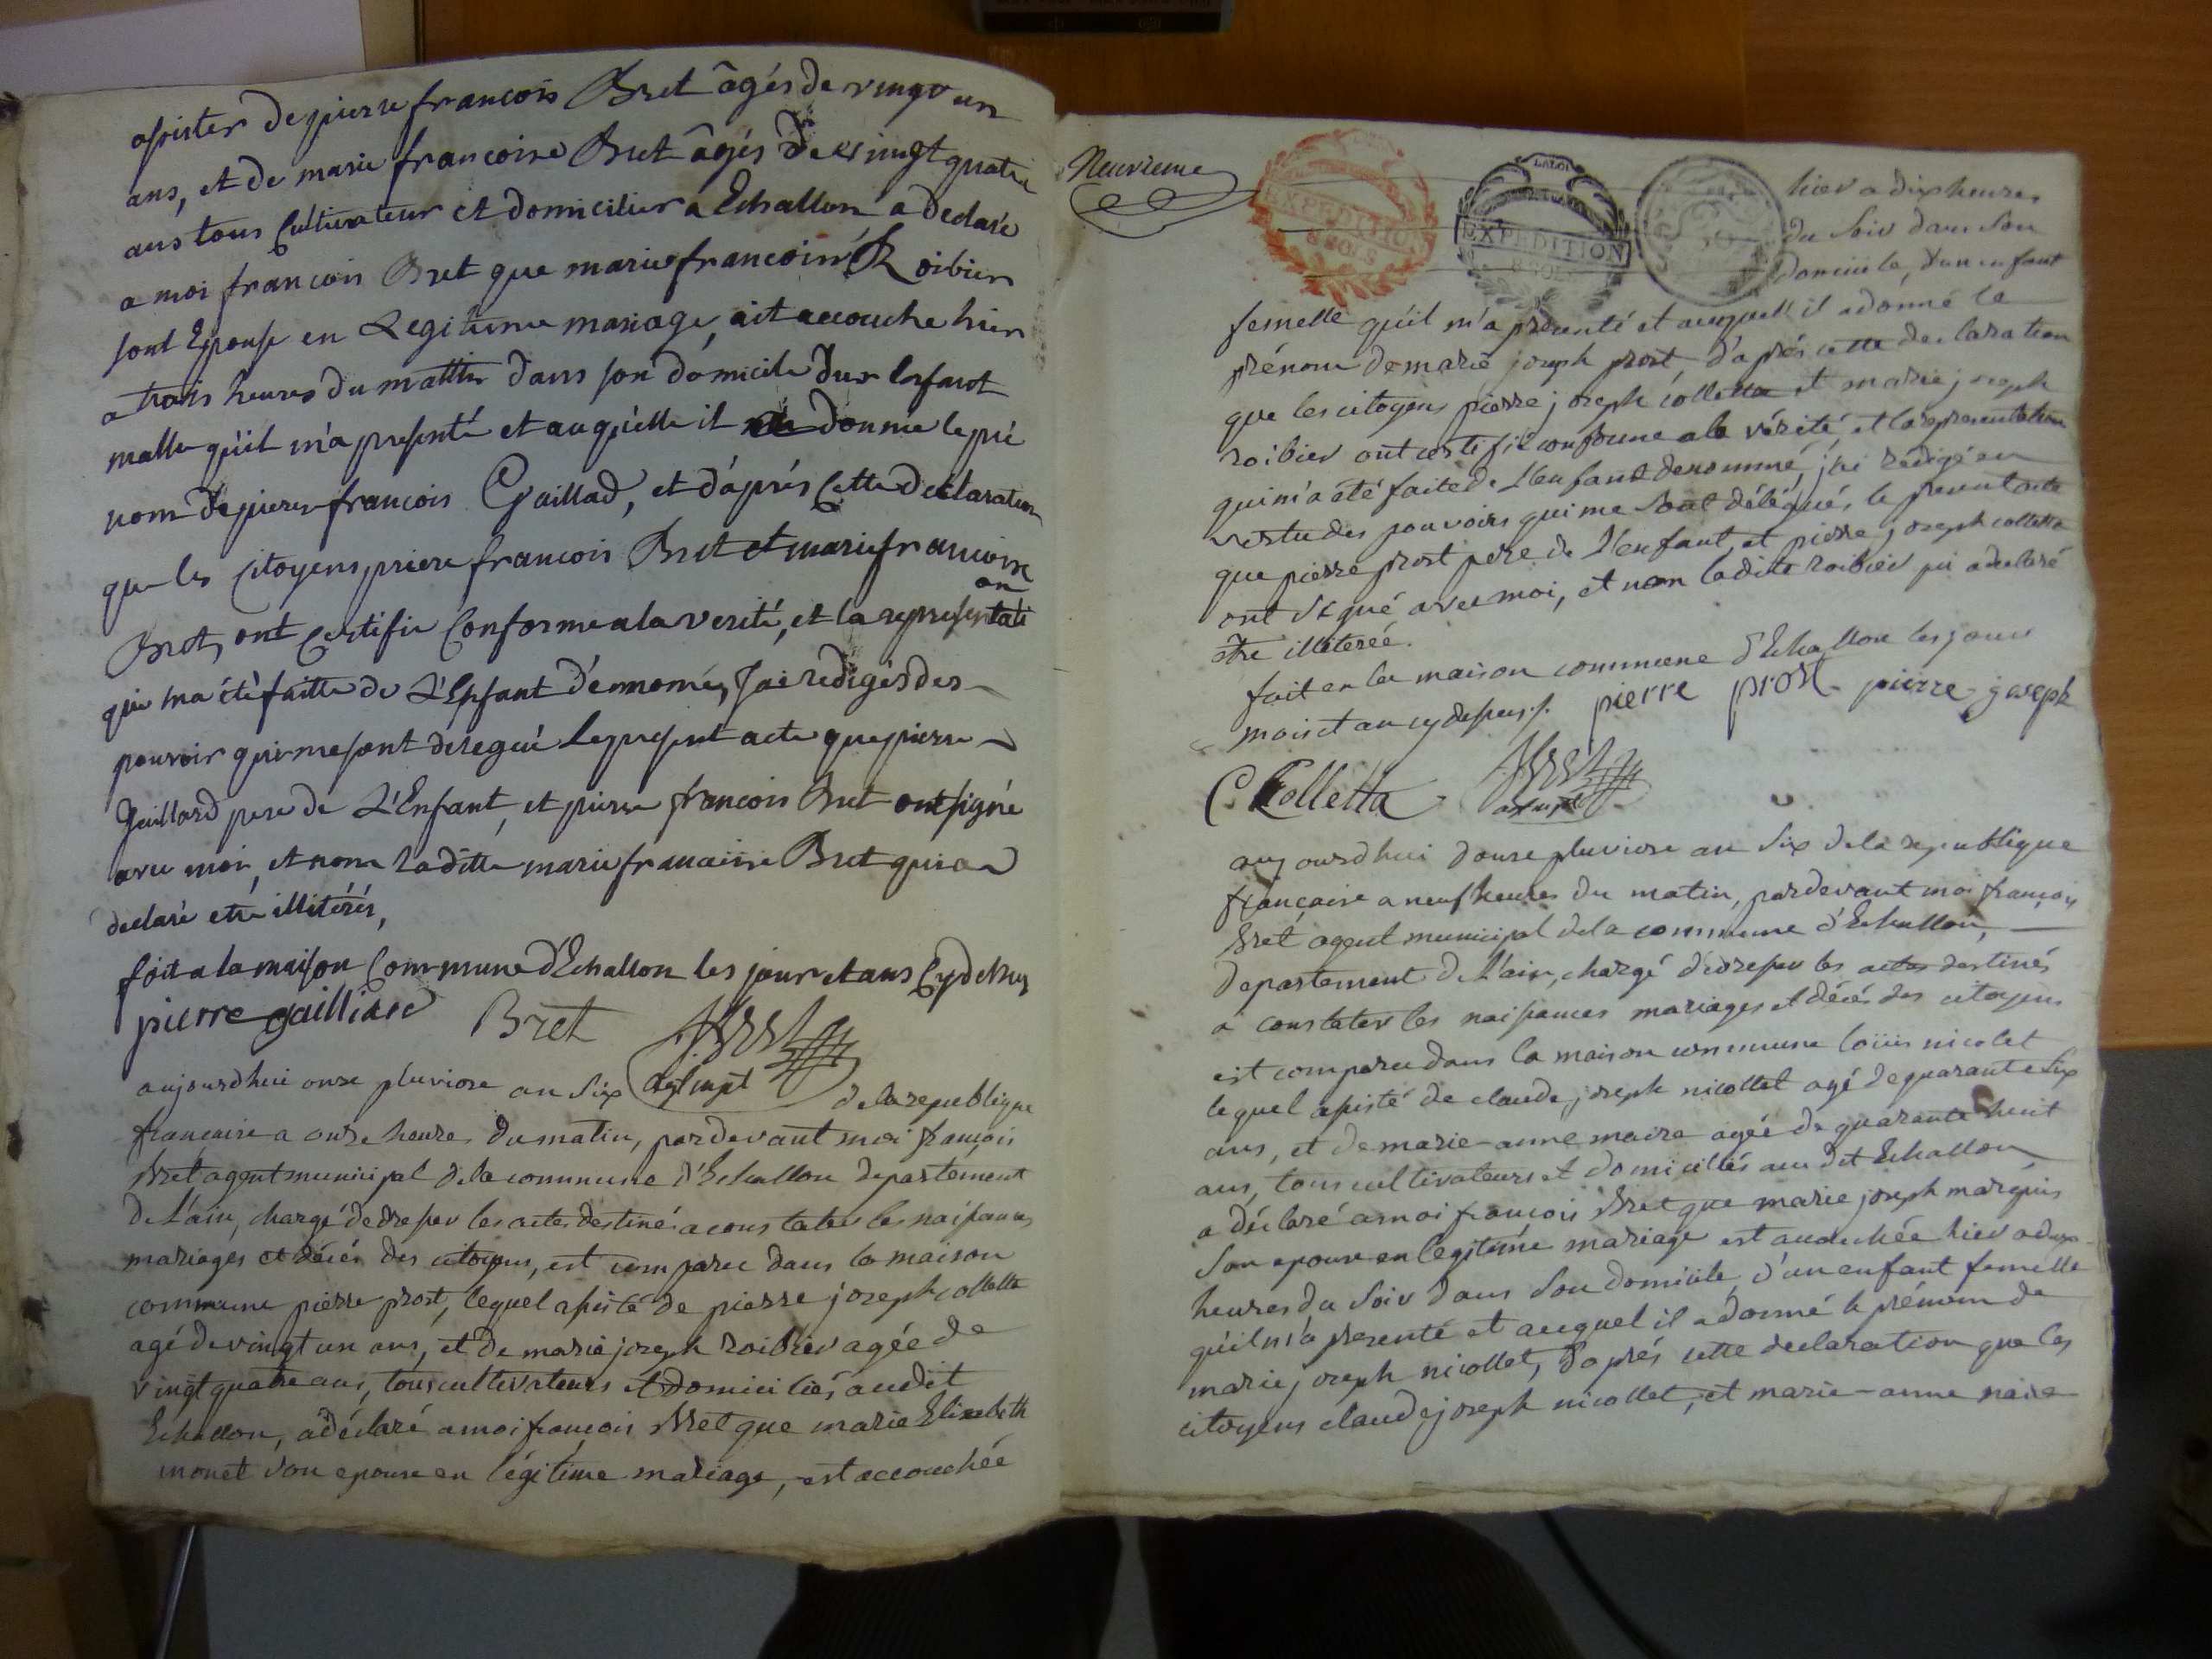 assister de pierre francois Bret âgés de vingt un
ans, et de marie francoise Bret âgés de vingt quatre
ans tous Cultivateur et domicilier a Echallon a declaré
a moi francois Bret que marie francoise Roibier
sont Epouse en Legitieme mariage, ait accouche hier
a trois heures du mattin dans son domicile dun Enfant
malle qu'il m'a presenté et au quelle il donne le pré
nom de pierre francois Gaillad, et d'áprés Cette declaration
que les Citoyens priere francois Bret et marie francoise
Bret, ont Certifie Conforme a la verité, et la representati
on
qui ma été faitte de L'Enfant dénnomé, J'ai redigés des
pouvoir qui me sont delegué le present acte que pierre
Gaillard pere de L'Enfant, et pierre francois Bret ont signé
avec moi, et nom laditte marie francaise Bret qui a
declaré etre illitérés,
fait a la maison Commune d'Echallon les jour et ans Cy dessus
pierre gailliard Bret Bret
agt mpl
aujourdhui onze pluviose an Six de la republique
francaise a onze heures du matin, pardevant moi françois
Bret agent municipal de la commune d'Echallon departement
de L'ain, chargé de dresser les actes destiné a constater les naissances
mariages et décés des citoyens, est comparu dans la maison
commune pierre prost, lequel assisté de pierre joseph colletta
agé de vingt un ans, et de marie joseph roibier agée de
vingt quatre ans, tous cultivateurs et domiciliés audit
Echallon, a déclaré a moi françois Bret que marie Elisabeth
monet son epouse en légitime mariage, est accouchée
Neuvieme
LA LOI
EXPEDITION
8 SOLS
EXPEDITION
8 SOLS
hier a dix heures
du Soir dans Son
Domicile, d'un enfant
femelle qu'il m'a presenté et auquell il a donné le
prénom de marie joseph prost, d'aprés cette declaration
que les citoyens pierre joseph colletta et marie joseph
roibier ont certifié conforme a la vérité, et la representation
qui m'a été faite de L'enfant denommé, j'ai rédigé en
vertu des pouvoirs qui me Sont délégués, le present acte
que pierre prost pere de L'enfant, et pierre joseph colletta
ont Signé avec moi, et non ladite roibier qui a declaré
être illiterée.
fait en la maison commune d'Echallon les jour
mois et an cy dessus. pierre prost pierre joseph
Colletta Bret
agt mpl
aujourdhui douze pluviose an Six de la republique
française a neuf heures du matin, pardevant moi françois
Bret agent municipal de la commune d'Echallon,
departement de L'ain, chargé de dresser les actes destinés
a constater les naissances mariages et décés des citoyens
est comparu dans la maison commune loüis nicolet
lequel assisté de claude joseph nicollet agé de quarante Six
ans, et de marie-anne maire agée de quarante huit
ans, tous cultivateurs et domiciliés audit Echallon,
a déclaré a moi françois Bret que marie joseph marquis
Son epouse en legitime mariage est accouchée hier a dix
heures du Soir dans Son domicile, d'un enfant femelle
qu'il m'a presenté et auquel il a donné le prénom de
marie joseph nicollet, d'aprés cette declaration que les
citoyens claude joseph nicollet, et marie-anne maire